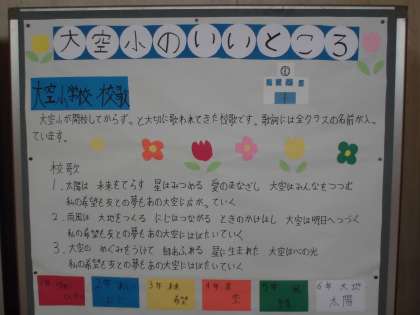 大空小のいいところ
①
大空小学校 校歌
大空小が開校してからずっと大切に歌われてきた校歌です。歌詞には全クラスの名前が入っ
ています。
校歌
1. 太陽は 未来をてらす 星はみつめる 愛のまなざし 大空はみんなをつつむ
私の希望も友との夢もあの大空に広がっていく
2. 雨風は 大地をつくる にじはつながる ときのかけはし 大空は明日へつづく
私の希望も友との夢もあの大空にはばたいていく
3. 大空の めぐみをうけて 緑あふれる 星に生まれた 大空は心の光
私の希望も友との夢もあの大空にはばたいていく
1年
2年
3年 未来
希望
4年
5年
6年 大地
太陽